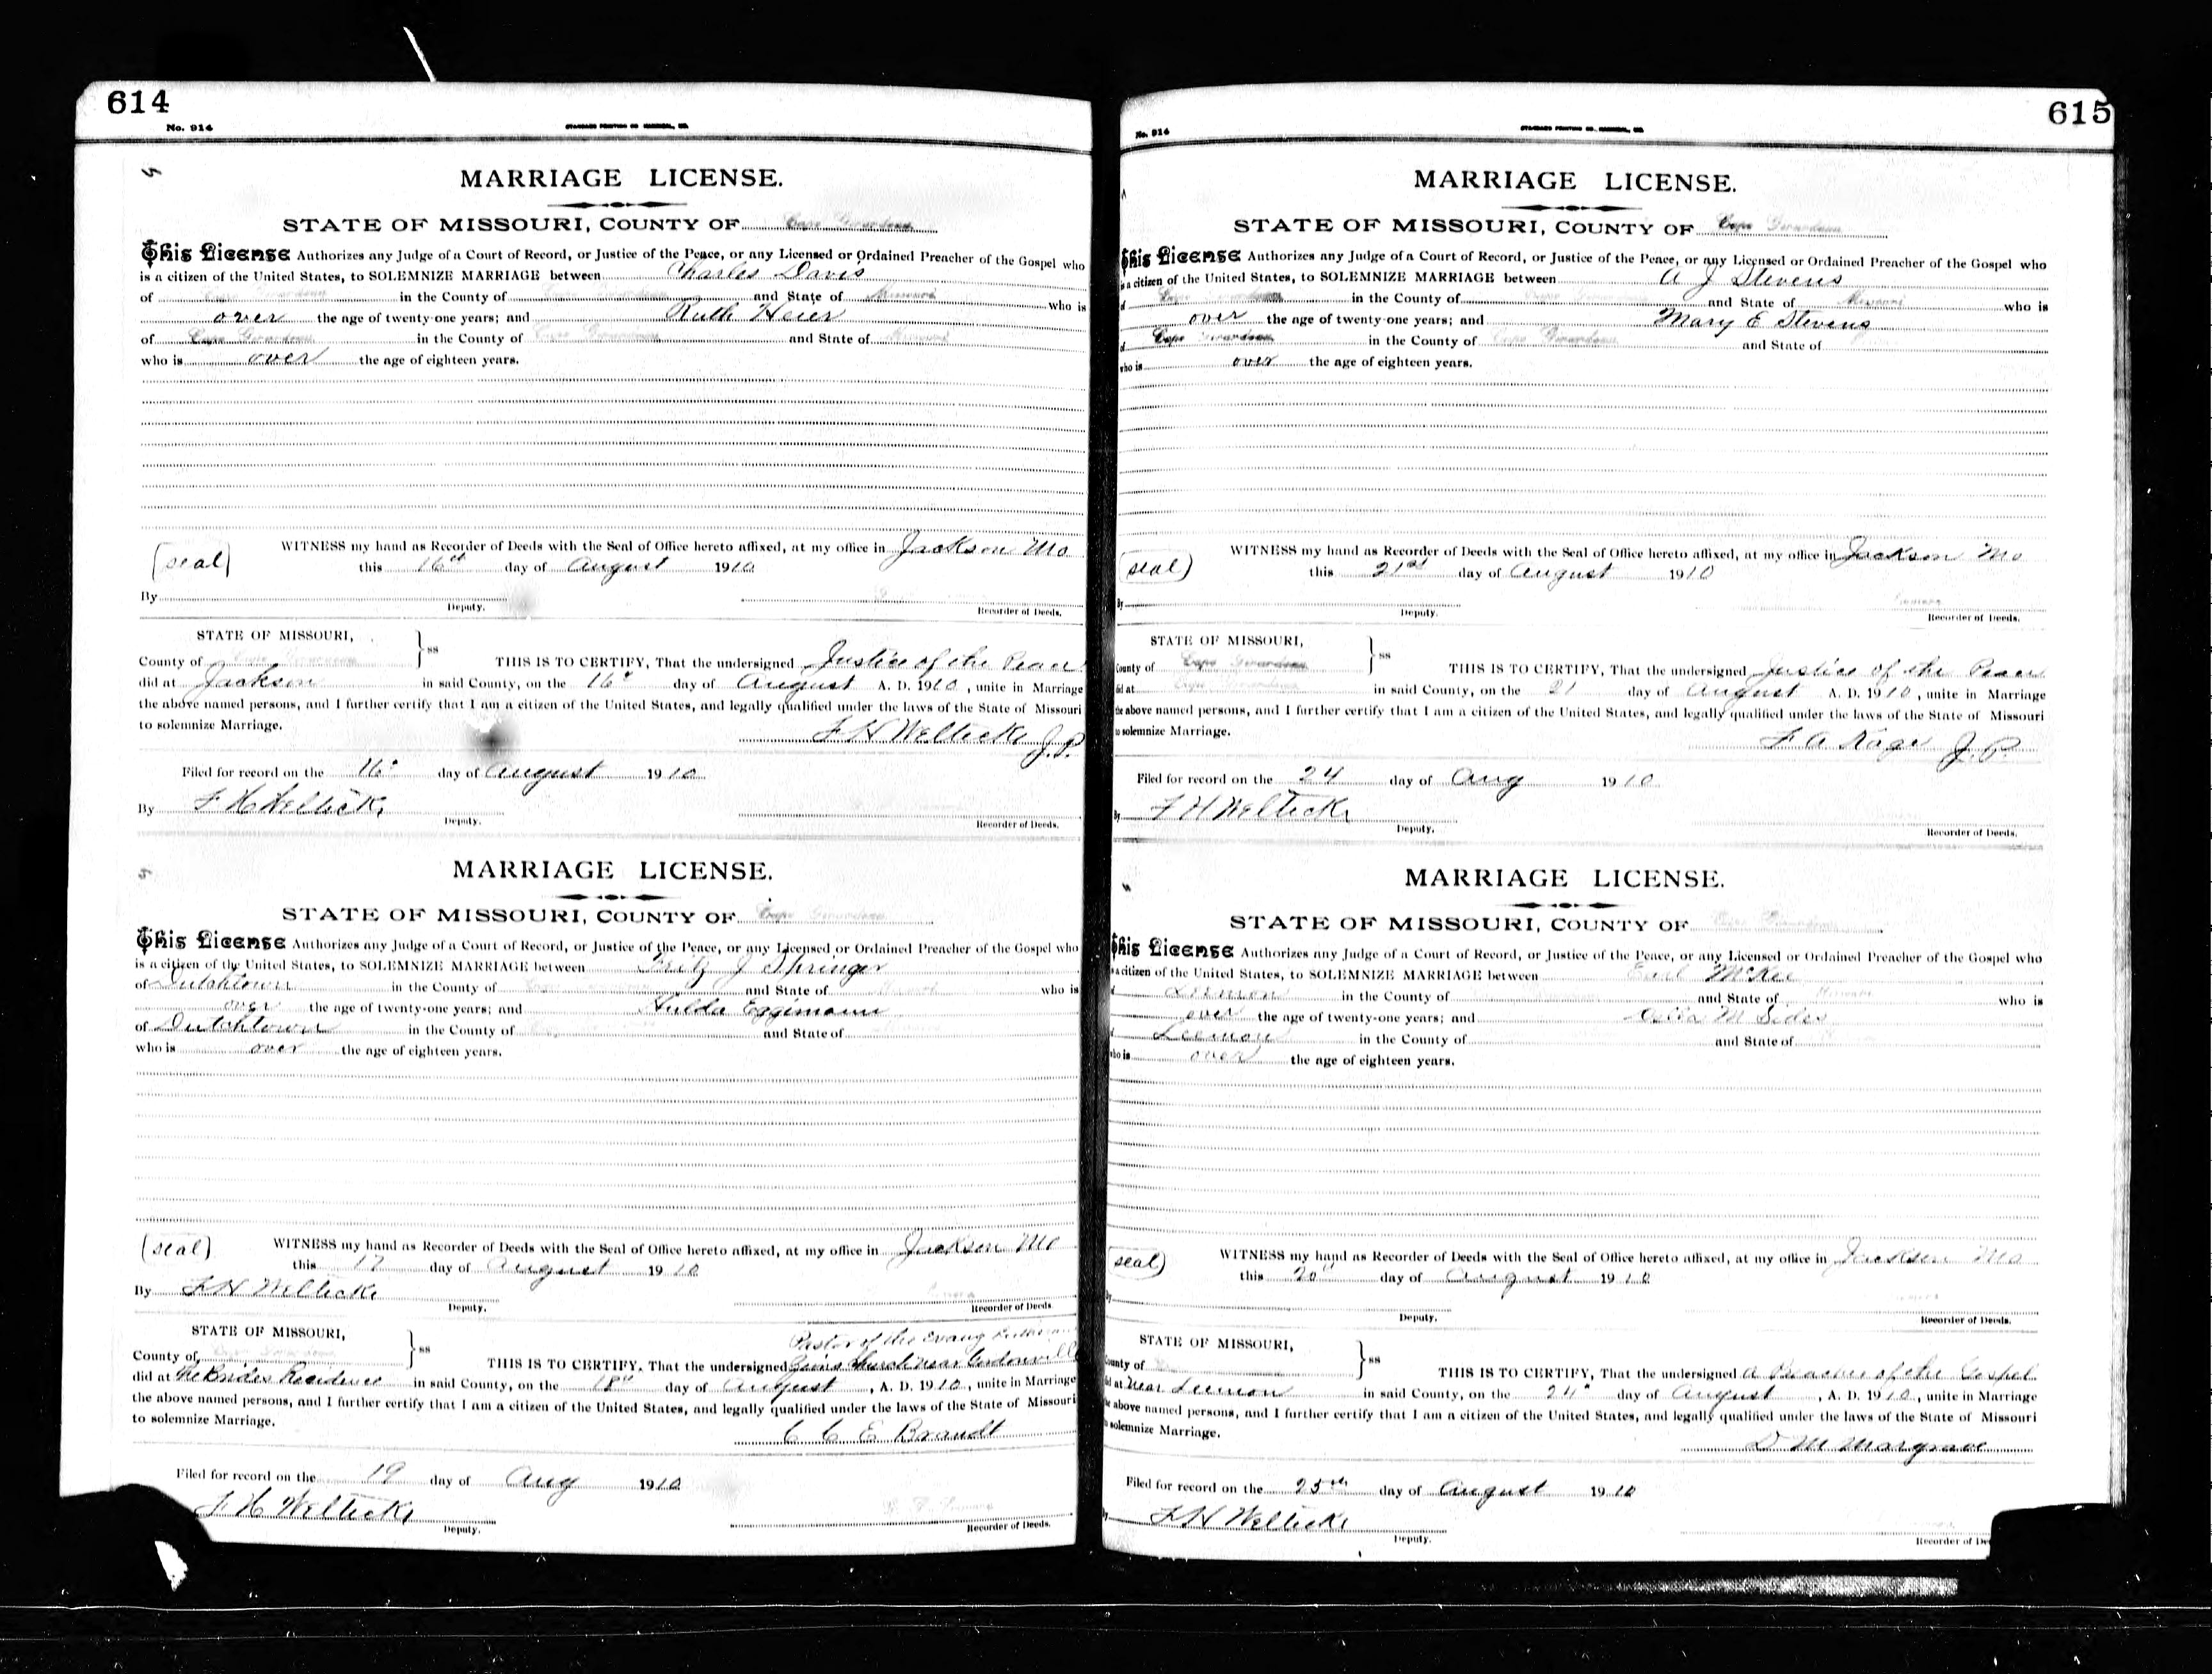 614
No. 914
MARRIAGE LICENSE.
STATE OF MISSOURI, COUNTY OF Cape Girardeau
This License Authorizes any Judge of a Court of Record, or Justice of the Peace, or any Licensed or Ordained Preacher of the Gospel who
is a citizen of the United States, to SOLEMNIZE MARRIAGE between Charles Davis
of Cape Girardeau in the County of Cape Girardeau and State of Missouri who is
over the age of twenty-one years; and Ruth Heier
of Cape Girardeau in the County of Cape Girardeau and State of Missouri
who is over the age of eighteen years.
(seal) WITNESS my hand as Recorder of Deeds with the Seal of Office hereto affixed, at my office in Jackson Mo
this 16th day of August 1910
By
Deputy. Recorder of Deeds.
STATE OF MISSOURI,
County of Cape Girardeau ss THIS IS TO CERTIFY, That the undersigned Justice of the Peace
did at Jackson in said County, on the 16" day of August A. D. 1910, unite in Marriage
the above named persons, and I further certify that I am a citizen of the United States, and legally qualified under the laws of the State of Missouri
to solemnize Marriage. F H Weltecke J.P.
Filed for record on the 16" day of August 1910
By F H Weltecke
Deputy. Recorder of Deeds.
MARRIAGE LICENSE.
STATE OF MISSOURI, COUNTY OF Cape Girardeau
This License Authorizes any Judge of a Court of Record, or Justice of the Peace, or any Licensed or Ordained Preacher of the Gospel who
is a citizen of the United States, to SOLEMNIZE MARRIAGE between Fritz J Springer
of Dutchtown in the County of and State of who is
over the age of twenty-one years; and Hulda Eggimann
of Dutchtown in the County of and State of
who is over the age of eighteen years.
(seal) WITNESS my hand as Recorder of Deeds with the Seal of Office hereto affixed, at my office in Jackson Mo
this 17 day of August 1910
By F H Weltecke
Deputy. Recorder of Deeds.
STATE OF MISSOURI, Pastor of the Evang
County of ss THIS IS TO CERTIFY, That the undersigned Zions Church near Gordonville
did at the Brides Residence in said County, on the 18" day of August, A. D. 1910, unite in Marriage
the above named persons, and I further certify that I am a citizen of the United States, and legally qualified under the laws of the State of Missouri
to solemnize Marriage. C C E Brandt
Filed for record on the 19 day of Aug 1910
F H Weltecke
Deputy. Recorder of Deeds.
615
No. 914
MARRIAGE LICENSE.
STATE OF MISSOURI, COUNTY OF Cape Girardeau
This License Authorizes any Judge of a Court of Record, or Justice of the Peace, or any Licensed or Ordained Preacher of the Gospel who
is a citizen of the United States, to SOLEMNIZE MARRIAGE between A J Stevens
of Cape Girardeau in the County of and State of Missouri who is
over the age of twenty-one years; and Mary E Stevens
of Cape Girardeau in the County of Cape Girardeau and State of
who is over the age of eighteen years.
(seal) WITNESS my hand as Recorder of Deeds with the Seal of Office hereto affixed, at my office in Jackson Mo
this 21st day of August 1910
By
Deputy. Recorder of Deeds.
STATE OF MISSOURI,
County of Cape Girardeau ss THIS IS TO CERTIFY, That the undersigned Justice of the Peace
did at Cape Girardeau in said County, on the 21 day of August A. D. 1910, unite in Marriage
the above named persons, and I further certify that I am a citizen of the United States, and legally qualified under the laws of the State of Missouri
to solemnize Marriage. F A Kage J.P.
Filed for record on the 24 day of Aug 1910
By F H Weltecke
Deputy. Recorder of Deeds.
MARRIAGE LICENSE.
STATE OF MISSOURI, COUNTY OF Cape Girardeau
This License Authorizes any Judge of a Court of Record, or Justice of the Peace, or any Licensed or Ordained Preacher of the Gospel who
is a citizen of the United States, to SOLEMNIZE MARRIAGE between Earl McKee
of Leemon in the County of and State of Missouri who is
over the age of twenty-one years; and M Sides
of Leemon in the County of and State of
who is over the age of eighteen years.
(seal) WITNESS my hand as Recorder of Deeds with the Seal of Office hereto affixed, at my office in Jackson Mo
this 20" day of August 1910
By
Deputy. Recorder of Deeds.
STATE OF MISSOURI,
County of ss THIS IS TO CERTIFY, That the undersigned a Preacher of the Gospel
did at Near Leemon in said County, on the 24" day of August, A. D. 1910, unite in Marriage
the above named persons, and I further certify that I am a citizen of the United States, and legally qualified under the laws of the State of Missouri
to solemnize Marriage. D M Margrave
Filed for record on the 25th day of August 1910
By F H Weltecke
Deputy. Recorder of De